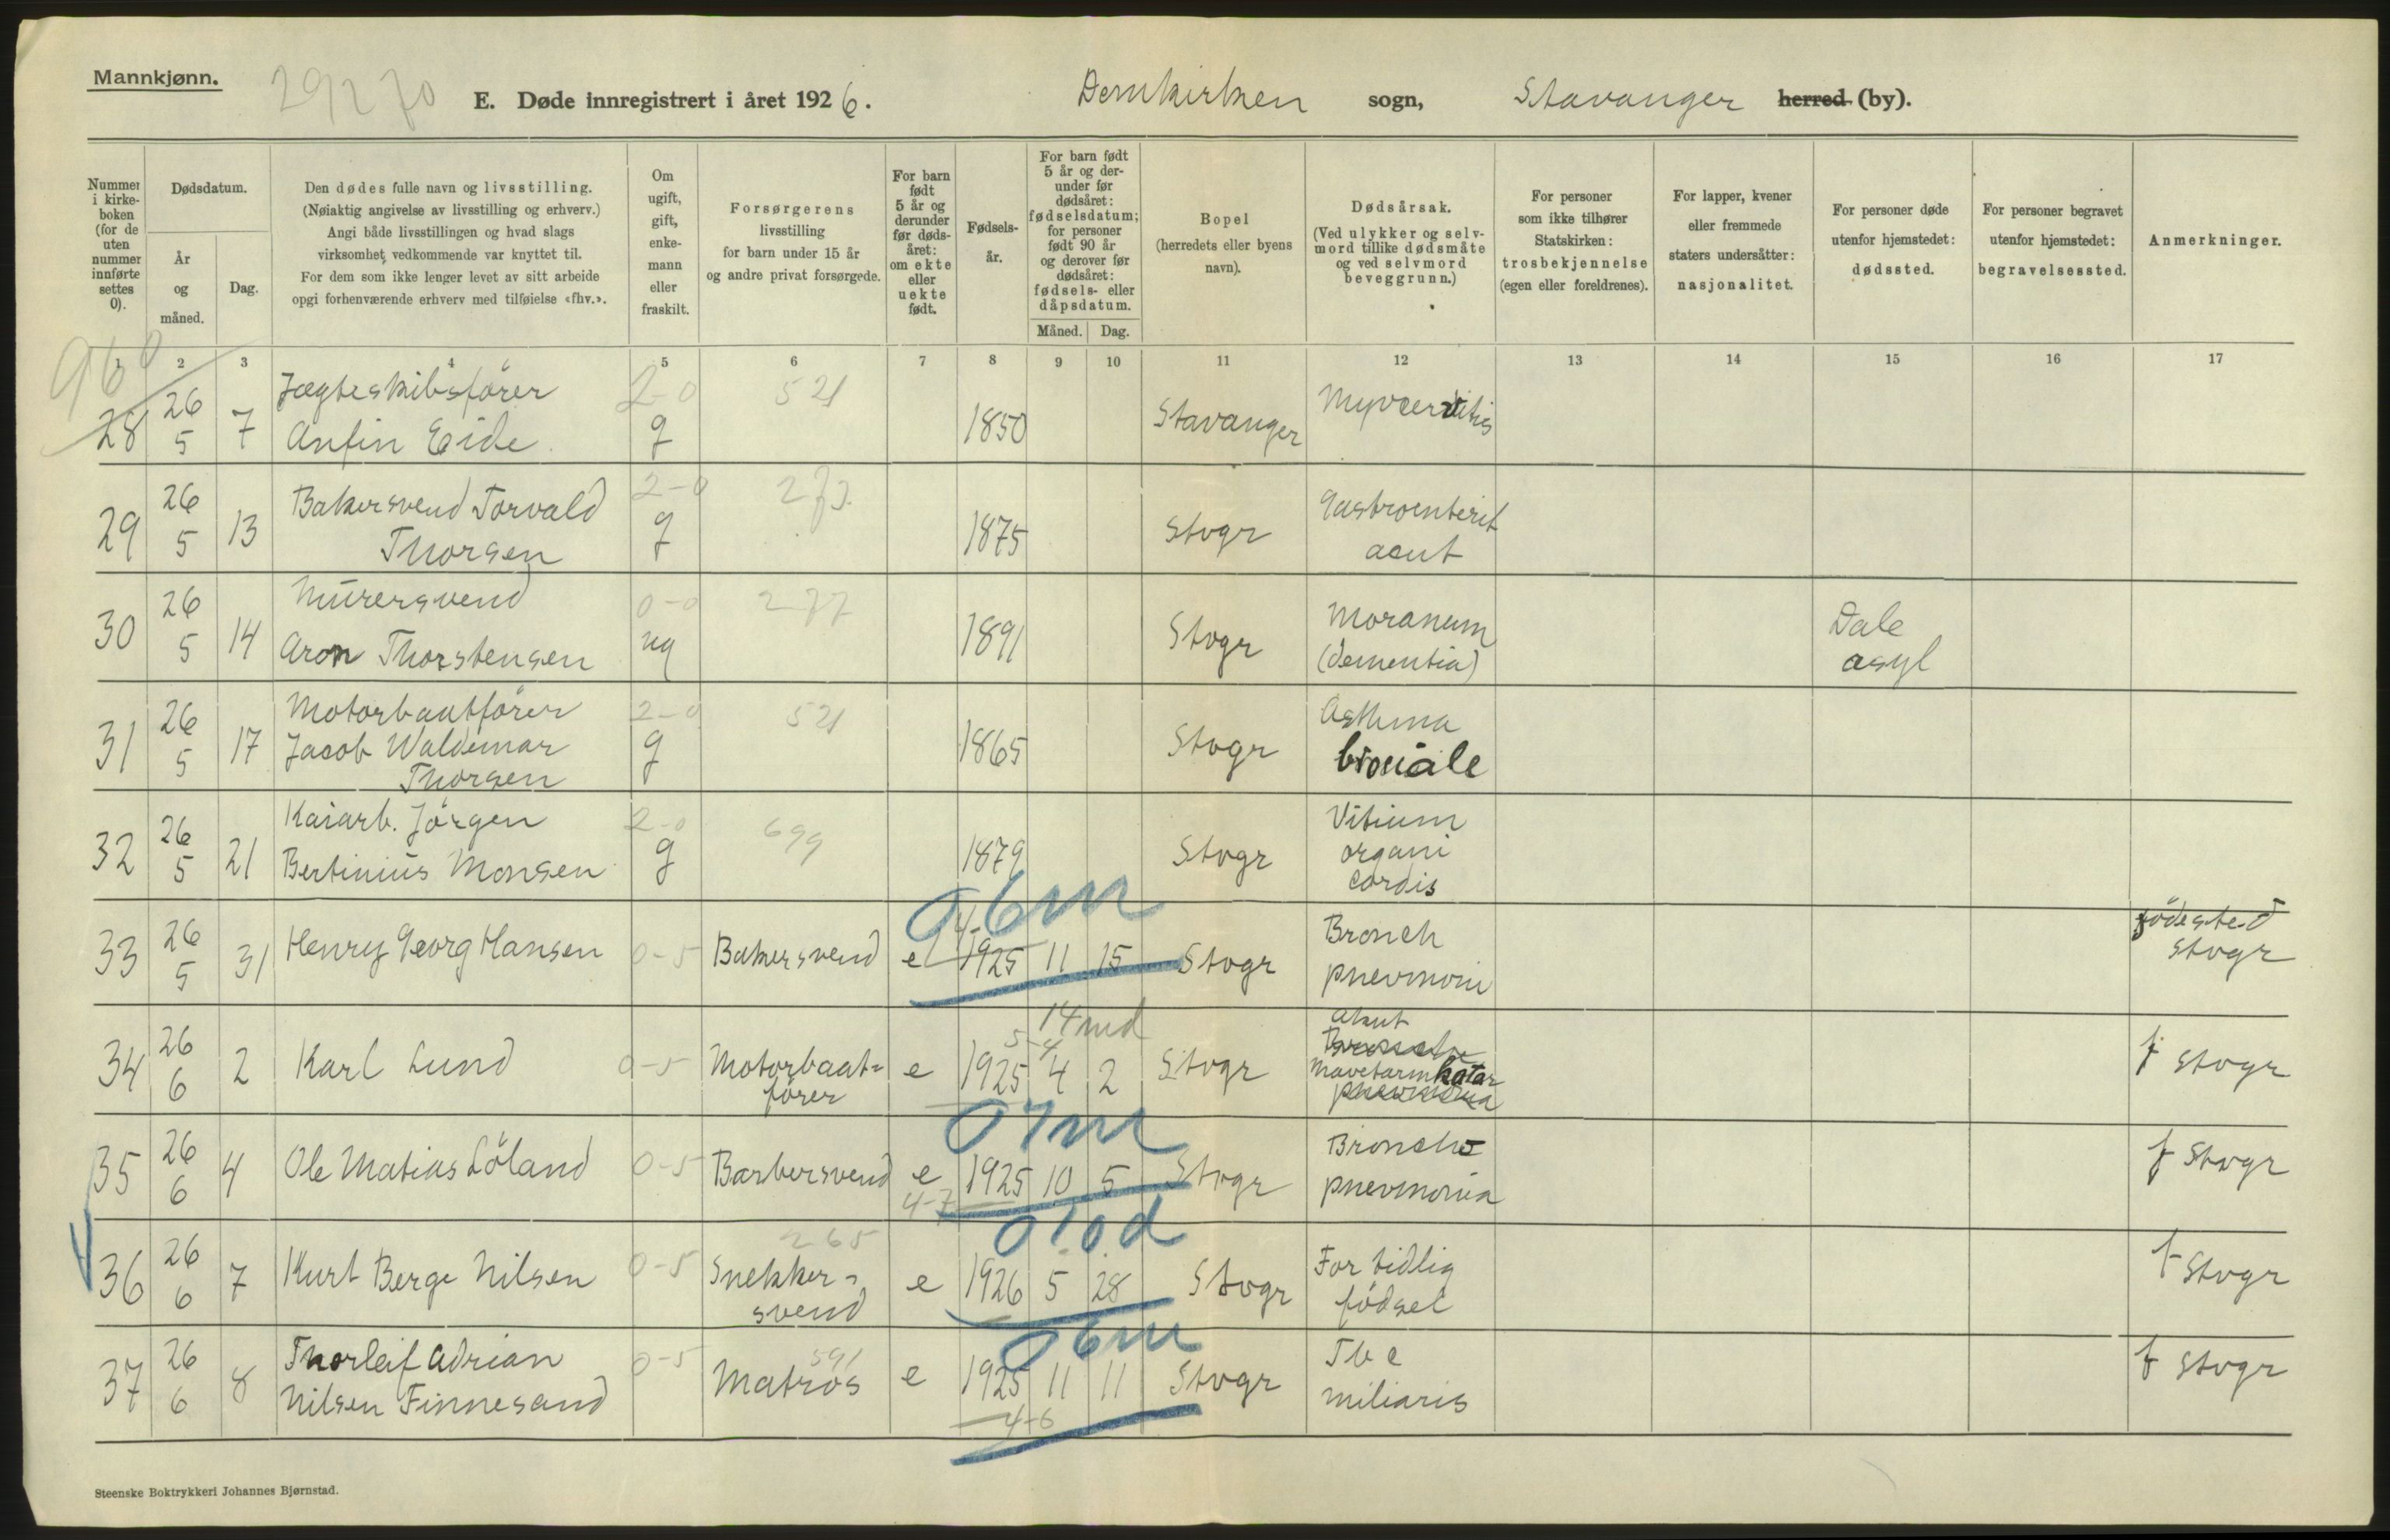 Mannkjønn.
29270
E. Døde innregistrert i året 1926.
Domkirken sogn, Stavanger herred (by).
Nummer i kirkeboken (for de uten nummer innførte settes 0).
Dødsdatum.
År og måned.
Dag.
Den dødes fulle navn og livsstilling.
(Nøiaktig angivelse av livsstilling og erhverv.)
Angi både livsstillingen og hvad slags
virksomhet vedkommende var knyttet til.
For dem som ikke lenger levet av sitt arbeide
opgi forhenværende erhverv med tilføielse «fhv.».
Om ugift, gift, enkemann eller fraskilt.
Forsørgerens
livsstilling
for barn under 15 år
og andre privat forsørgede.
For barn født 5 år og derunder før dødsåret: om ekte eller uekte født.
Fødselsår.
For barn født 5 år og derunder før dødsåret: fødselsdatum; for personer født 90 år og derover før dødsåret: fødsels- eller dåpsdatum.
Måned. Dag.
Bopel
(herredets eller byens
navn).
Dødsårsak.
(Ved ulykker og selvmord tillike dødsmåte og ved selvmord beveggrunn.)
For personer
som ikke tilhører
Statskirken:
trosbekjennelse
(egen eller foreldrenes).
For lapper, kvener
eller fremmede
staters undersåtter:
nasjonalitet.
For personer døde
utenfor hjemstedet:
dødssted.
For personer begravet
utenfor hjemstedet:
begravelsessted.
Anmerkninger.
960
1 2 3 4 5 6 7 8 9 10 11 12 13 14 15 16 17
28 26 5 7 Jægteskibsfører Anfin Eide 2-0 g 521 1850 Stavanger
29 26 5 13 Bakersvend Torvald Thorsen 2-0 g 273 1875 Stvgr Gastroenterit acut
30 26 5 14 Murersvend Aron Thorstensen 0-0 ug 277 1891 Stvgr (dementia) Dale asyl
31 26 5 17 Motorbaatfører Jacob Waldemar Thorsen 2-0 g 521 1865 Stvgr Asthma
32 26 5 21 Kaiarb. Jörgen Bertinius Monsen 2-0 g 699 1879 Stvgr Vitium organi cordis
06m
4-
33 26 5 31 Henry Georg Hansen 0-5 Bakersvend e 1925 11 15 Stvgr Bronch pnevmoni födested Stvgr
14 md
5-4
34 26 6 2 Karl Lund 0-5 Motorbaat=fører e 1925 4 2 Stvgr akut Broncho Mavetarmkatar pnevmonia f Stvgr
07m
35 26 6 4 Ole Matias Löland 0-5 Barbersvend e 1925 10 5 Stvgr Broncho pnevmonia f Stvgr
4-7
010d
36 26 6 7 Kurt Berge Nilsen 0-5 265 Snekker=svend e 1926 5 28 Stvgr For tidlig födsel f Stvgr
06m
37 26 6 8 Thorleif Adrian Nilsen Finnesand 0-5 591 Matros e 1925 11 11 Stvgr Tbc miliaris f Stvgr
4-6
Steenske Boktrykkeri Johannes Bjørnstad.